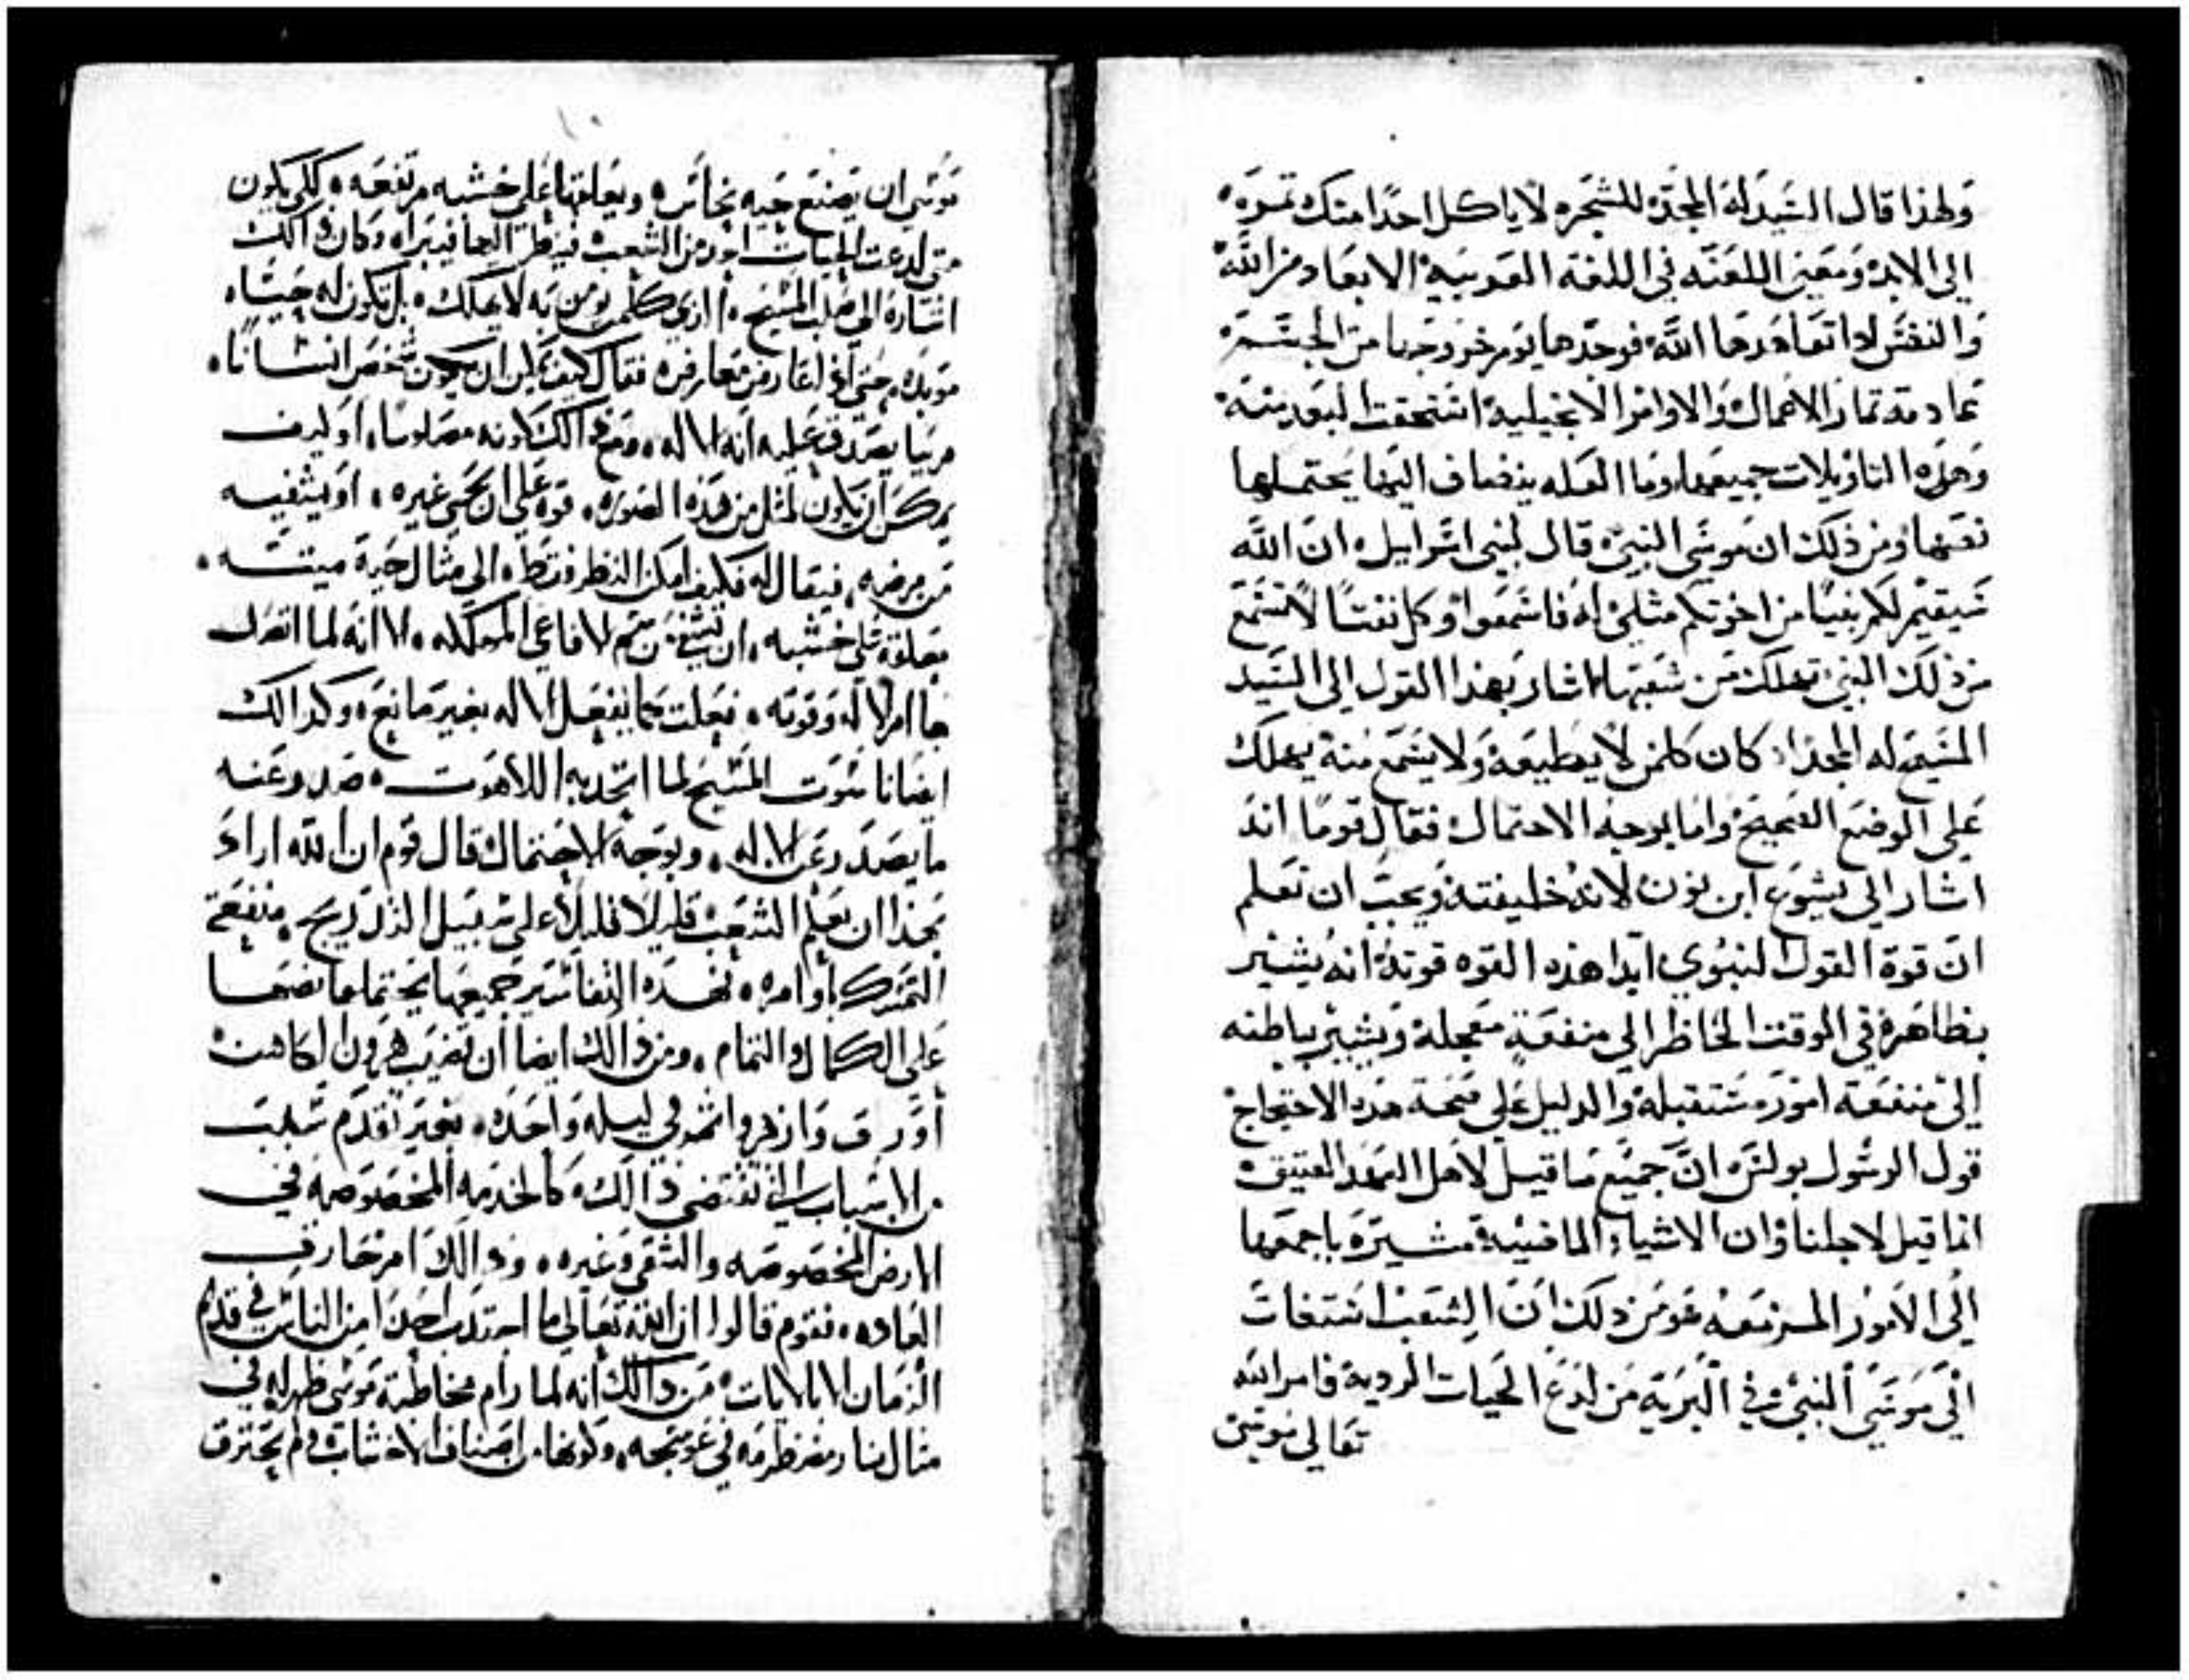 ولهذا قال السيد له المجد للشجره لا ياكل احدا منك تمره
الى الابد ومعنى اللعنه في اللغة العربية الابعاد من الله
والنفس اذا تعاهدها الله فوجدها يوم خروجها من الجسم
عادمة تمار الاعمال والاوامر الانجيلية استحقت البعد منه
وهذه التاويلات جميعها وما العله ينضاف اليها يحتملها
نصها ومن ذلك ان موسى النبي قال لبني اسرايل ان الله
سيقيم لكم نبيا من اخوتكم مثلي له فاسمعوا وكل نفسا لا تسمع
من ذلك النبي تهلك من شعبها اشار بهذا القول الى السيد
المسيح له المجد اذ كان كلمن لا يطيعه ولا يسمع منه يهلك
على الوضع الصحيح واما بوجه الاحتمال فقال قوما انه
اشار الى يشوع ابن نون لانه خليفته ويجب ان تعلم
ان قوة القول النبوي ابدا هذه القوه قوته انه يشير
بظاهره في الوقت الحاظر الى منفعة معجلة ويشير بباطنه
الى منفعة امور مستقبلة والدليل على صحة هذه الاحتجاج
قول الرسول بولس ان جميع ما قيل لاهل العهد العتيق
انما قيل لاجلنا وان الاشياء الماضيه مشيرة باجمعها
الى الامور المزمعه ومن ذلك ان الشعب استغات
الى موسى النبي في البرية من لدغ الحيات الردية فامر الله
تعالى موسى
موسى ان يصنع حيه نحاس ويعلقها على خشبه مرتفعه لكي يكون
متى لدعت الحيات احد من الشعب فينظر اليها فيبرا وكان دالك
اشارة الى صلب المسيح الذي كلمن يومن به لا يهلك بل تكون له حياه
موبده حتى اذا عارض معارض فقال كيف يمكن ان يكون شخص انسانا
مريبا يصدق عليه انه الاله ومع دالك كونه مصلوبا او كيف
يمكن ان يكون لمثل من هذه الصوره قوة على ان يحيي غيره او يشفيه
من مرضه فيقال له فكيف امكن النظر فقط الى مثال حية ميتته
معلقة على خشبه ان يشفي من سم الافاعي المهلكه الا انه لما اتصل
بها امر الاله وقوته فعلت كما يفعل الاله بغير مانع وكدالك
ايضا ناسوت المسيح لما اتحد به اللاهوت صدر عنه
ما يصدر عن الاله وبوجه الاحتمال قال قوم ان الله اراد
بهذا ان يعلم الشعب قليلا قليلا على سبيل التدريج منفعة
التمسك باوامره فهذه التفاسير جميعها تحتملها نصها
على الكمال والتمام ومن دالك ايضا ان قضيب هرون الكاهن
اورق وازهر واثمر في ليله واحده بغير تقدم سبب
من الاسباب التي تقتضي دالك كالخدمه المخصوصه في
الارض المخصوصه والسقي وغيره ودالك امر خارق
العاده فقوم قالوا ان الله تعالى ما اجتدب احدا من الناس في قديم
الزمان الا بالايات فمن دالك انه لما رام مخاطبة موسى ظهر له في
مثال نار مضطرمه في عوسجه وكونها من اصناف الاخشاب لم يحترق